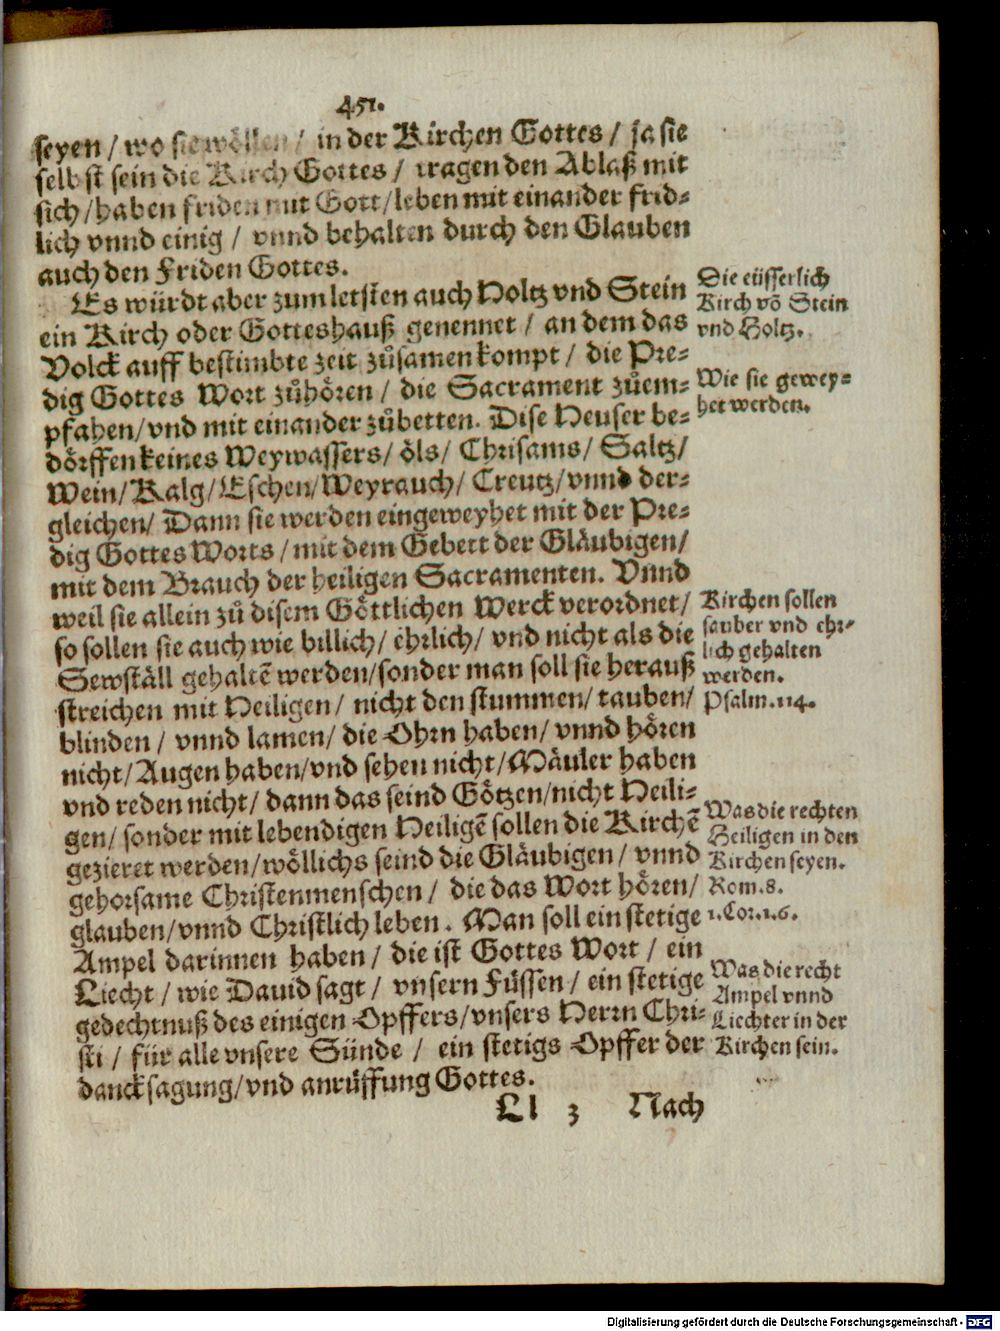 451.
seyen / wo sie wöllen / in der Kirchen Gottes / ja sie
selbst sein die Kirch Gottes / tragen den Ablaß mit
sich / haben friden mit Gott / leben mit einander frid-
lich vnnd einig / vnnd behalten durch den Glauben
auch den Friden Gottes.
Es würdt aber zum letsten auch Holtz vnd Stein
ein Kirch oder Gotteshauß genennet / an dem das
Volck auff bestimbte zeit zůsamen kompt / die Pre-
dig Gottes Wort zůhören / die Sacrament zůem-
pfahen / vnd mit einander zůbetten. Dise Heuser be-
dörffen keines Weywassers / öls / Chrisams / Saltz /
Wein / Kalg / Eschen / Weyrauch / Creutz / vnnd der-
gleichen / Dann sie werden eingeweyhet mit der Pre-
dig Gottes Worts / mit dem Gebett der Gläubigen /
mit dem Brauch der heiligen Sacramenten. Vnnd
weil sie allein zů disem Göttlichen Werck verordnet /
so sollen sie auch wie billich / ehrlich / vnd nicht als die
Sewställ gehaltē werden / sonder man soll sie herauß
streichen mit Heiligen / nicht den stummen / tauben /
blinden / vnnd lamen / die Ohrn haben / vnnd hören
nicht / Augen haben / vnd sehen nicht / Mäuler haben
vnd reden nicht / dann das seind Götzen / nicht Heili-
gen / sonder mit lebendigen Heiligē sollen die Kirchē
gezieret werden / wöllichs seind die Gläubigen / vnnd
gehorsame Christenmenschen / die das Wort hören /
glauben / vnnd Christlich leben. Man soll ein stetige
Ampel darinnen haben / die ist Gottes Wort / ein
Liecht / wie Dauid sagt / vnsern Füssen / ein stetige
gedechtnuß des einigen Opffers / vnsers Herrn Chri-
sti / für alle vnsere Sünde / ein stetigs Opffer der
dancksagung / vnd anrüffung Gottes.
Ll 3 Nach
Die eüsserlich
Kirch vō Stein
vnd Holtz.
Wie sie gewey-
het werden.
Kirchen sollen
sauber vnd ehr-
lich gehalten
werden.
Psalm. 114.
Was die rechten
Heiligen in den
Kirchen seyen.
Rom. 8.
1. Cor. 1. 6.
Was die recht
Ampel vnnd
Liechter in der
Kirchen sein.
Digitalisierung gefördert durch die Deutsche Forschungsgemeinschaft - DFG